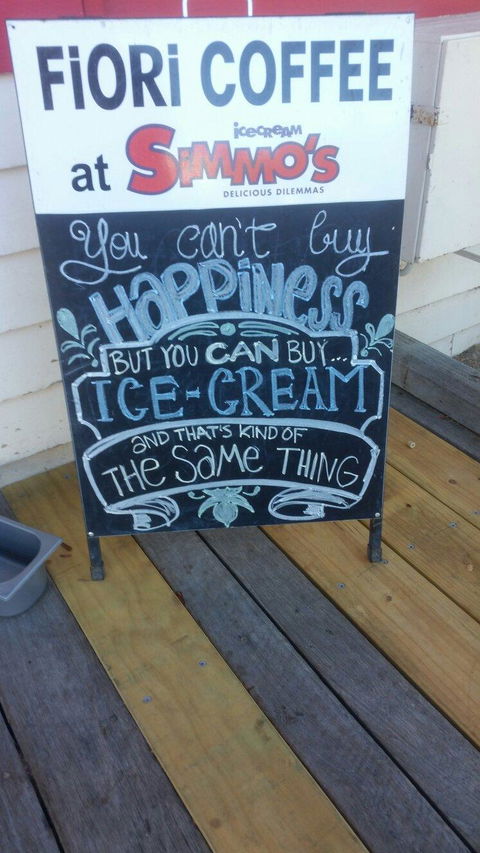 FiORi COFFEE
at icecream SiMMO'S
DELICIOUS DILEMMAS
You can't buy
HaPPiNess
BUT YOU CAN BUY...
ICE-CREAM
AND THAT'S KIND OF
THE SaMe THING